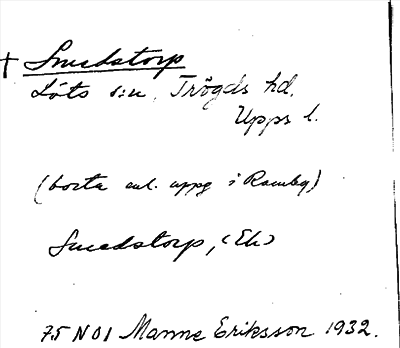 † Smedstorp
Löts s:n, Trögds hd.
Upps l.
(borta enl. uppg i Ramby)
Smedstorp, (Ek)
75 N01 Manne Eriksson 1932.